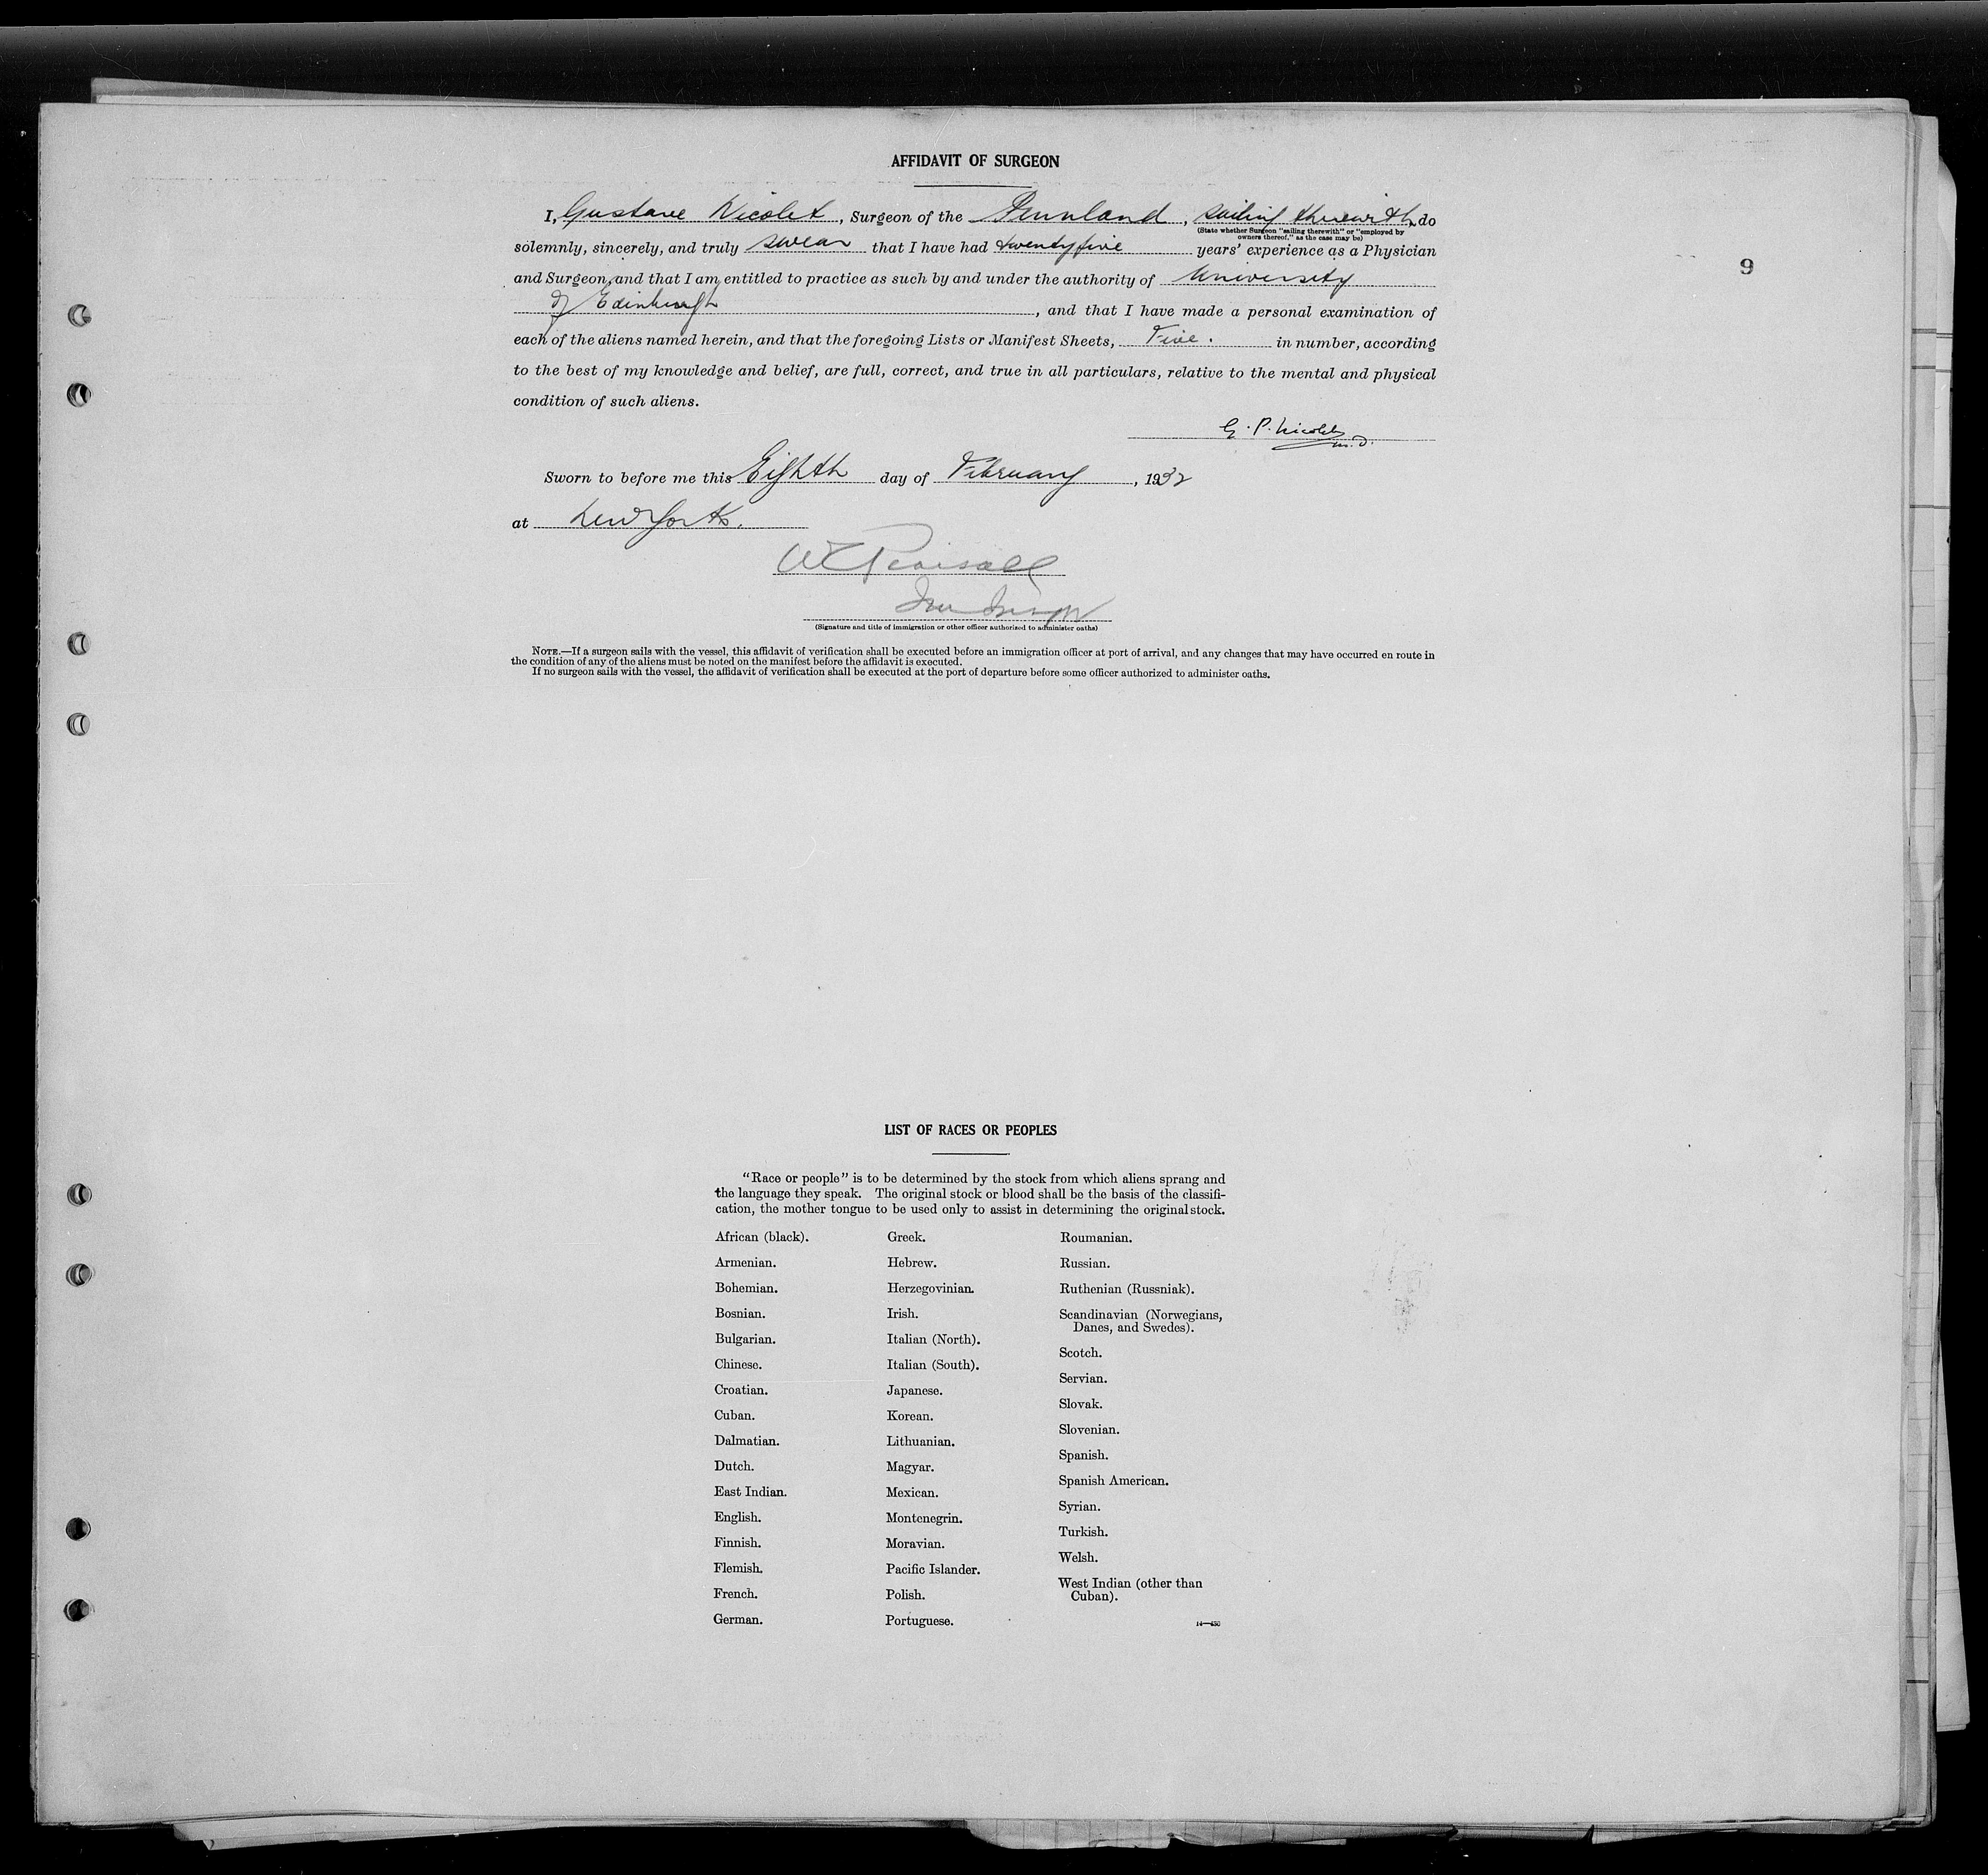 AFFIDAVIT OF SURGEON
I, Gustave Nicolet, Surgeon of the Pennland, sailing therewith, do
(State whether Surgeon "sailing therewith" or "employed by
owners thereof," as the case may be)
solemnly, sincerely, and truly swear that I have had twenty five years' experience as a Physician
and Surgeon, and that I am entitled to practice as such by and under the authority of University
of Edinburgh, and that I have made a personal examination of
each of the aliens named herein, and that the foregoing Lists or Manifest Sheets, Five. in number, according
to the best of my knowledge and belief, are full, correct, and true in all particulars, relative to the mental and physical
condition of such aliens.
G. P. Nicolet M.D.
Sworn to before me this Eighth day of February, 1932
at New York.
(Signature and title of immigration or other officer authorized to administer oaths)
NOTE.—If a surgeon sails with the vessel, this affidavit of verification shall be executed before an immigration officer at port of arrival, and any changes that may have occurred en route in
the condition of any of the aliens must be noted on the manifest before the affidavit is executed.
If no surgeon sails with the vessel, the affidavit of verification shall be executed at the port of departure before some officer authorized to administer oaths.
9
LIST OF RACES OR PEOPLES
"Race or people" is to be determined by the stock from which aliens sprang and
the language they speak. The original stock or blood shall be the basis of the classifi-
cation, the mother tongue to be used only to assist in determining the original stock.
African (black).
Armenian.
Bohemian.
Bosnian.
Bulgarian.
Chinese.
Croatian.
Cuban.
Dalmatian.
Dutch.
East Indian.
English.
Finnish.
Flemish.
French.
German.
Greek.
Hebrew.
Herzegovinian.
Irish.
Italian (North).
Italian (South).
Japanese.
Korean.
Lithuanian.
Magyar.
Mexican.
Montenegrin.
Moravian.
Pacific Islander.
Polish.
Portuguese.
Roumanian.
Russian.
Ruthenian (Russniak).
Scandinavian (Norwegians,
Danes, and Swedes).
Scotch.
Servian.
Slovak.
Slovenian.
Spanish.
Spanish American.
Syrian.
Turkish.
Welsh.
West Indian (other than
Cuban).